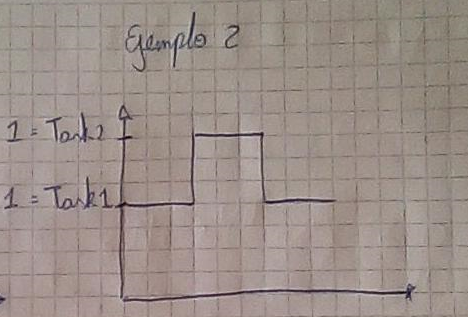 Ejemplo 2
1 = Task2
1 = Task1